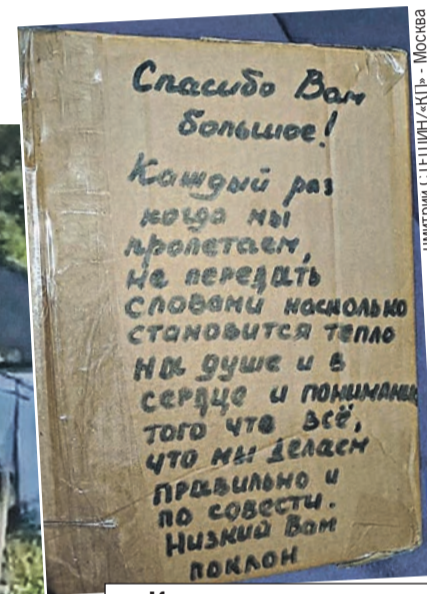 Спасибо Вам
большое!
Каждый раз
когда мы
пролетаем,
не передать
словами насколько
становится тепло
на душе и в
сердце и понимание
того что всё,
что мы делаем
правильно и
по совести.
Низкий Вам
поклон
Дмитрий СТЕШИН/«КП» - Москва